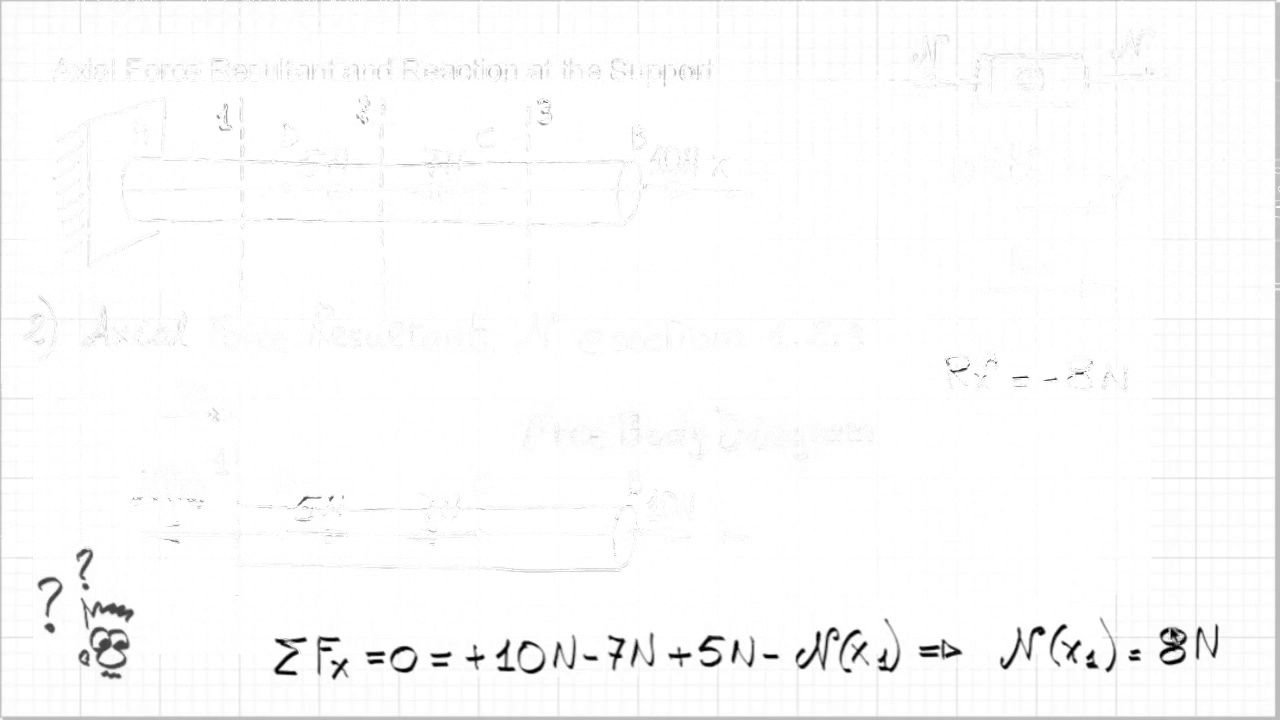 Axial Force Resultant and Reaction at the Support
1 2 3
A D 5N 7N C B 10N x
2) Axial Force Resultant, N @sections 1.2.3
Rxᴬ = -8N
Free Body Diagram
1
5N 7N B 10N
? ?
ΣFx = 0 = +10N - 7N + 5N - N(x₁) ⇒ N(x₁) = 8N